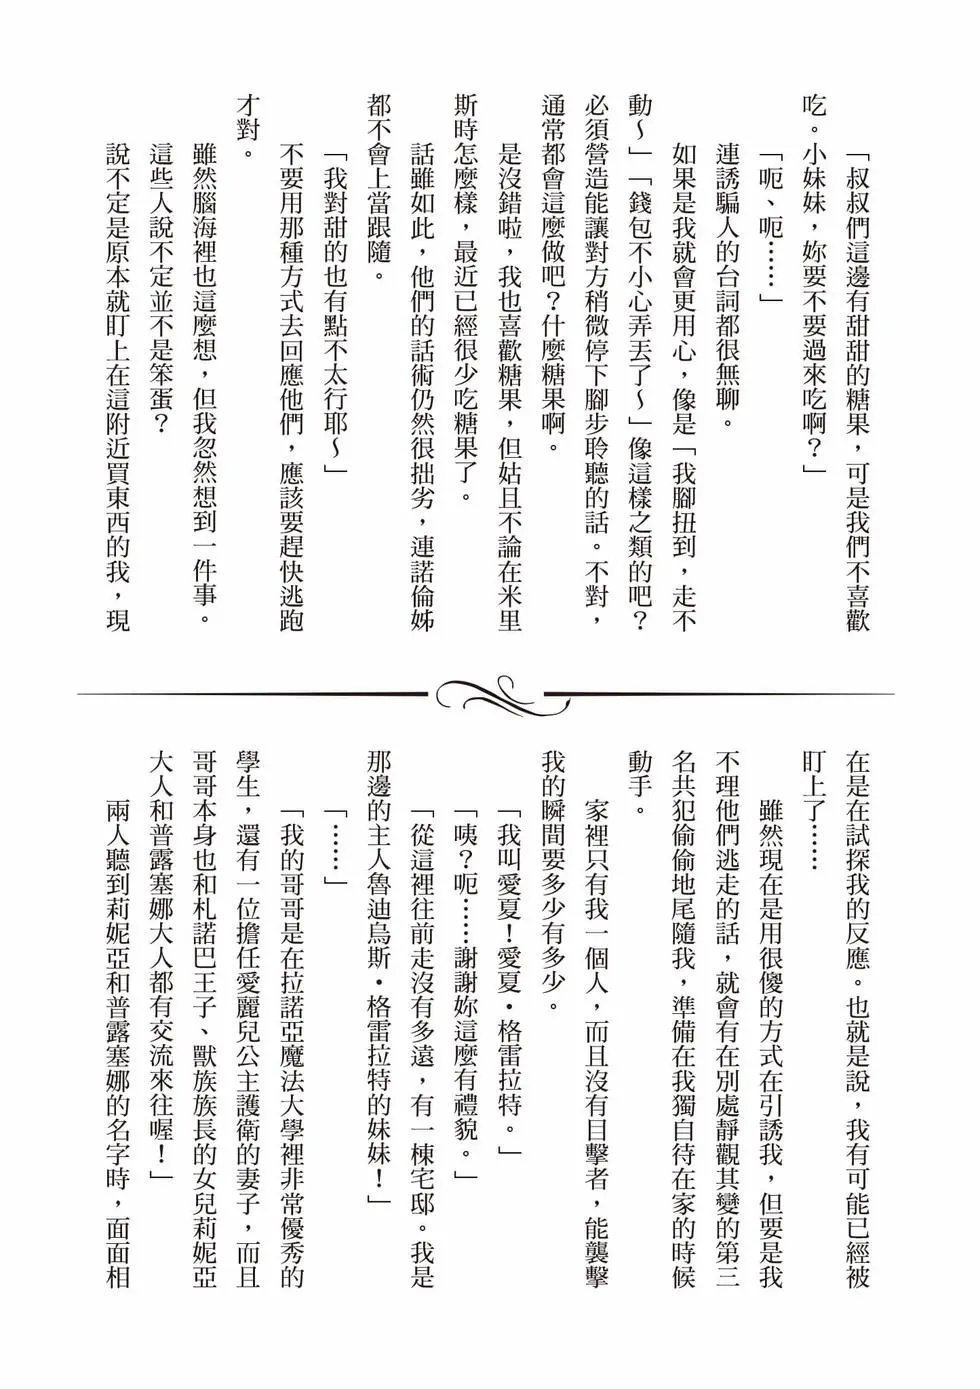 「叔叔們這邊有甜甜的糖果，可是我們不喜歡
吃。小妹妹，妳要不要過來吃啊？」
「呃、呃……」
連誘騙人的台詞都很無聊。
如果是我就會更用心，像是「我腳扭到，走不
動～」「錢包不小心弄丟了～」像這樣之類的吧？
必須營造能讓對方稍微停下腳步聆聽的話。不對，
通常都會這麼做吧？什麼糖果啊。
是沒錯啦，我也喜歡糖果，但姑且不論在米里
斯時怎麼樣，最近已經很少吃糖果了。
話雖如此，他們的話術仍然很拙劣，連諾倫姊
都不會上當跟隨。
「我對甜的也有點不太行耶～」
不要用那種方式去回應他們，應該要趕快逃跑
才對。
雖然腦海裡也這麼想，但我忽然想到一件事。
這些人說不定並不是笨蛋？
說不定是原本就盯上在這附近買東西的我，現
在是在試探我的反應。也就是說，我有可能已經被
盯上了……
雖然現在是用很傻的方式在引誘我，但要是我
不理他們逃走的話，就會有在別處靜觀其變的第三
名共犯偷偷地尾隨我，準備在我獨自待在家的時候
動手。
家裡只有我一個人，而且沒有目擊者，能襲擊
我的瞬間要多少有多少。
「我叫愛夏！愛夏・格雷拉特。」
「咦？呃……謝謝妳這麼有禮貌。」
「從這裡往前走沒有多遠，有一棟宅邸。我是
那邊的主人魯迪烏斯・格雷拉特的妹妹！」
「……」
「我的哥哥是在拉諾亞魔法大學裡非常優秀的
學生，還有一位擔任愛麗兒公主護衛的妻子，而且
哥哥本身也和札諾巴王子、獸族族長的女兒莉妮亞
大人和普露塞娜大人都有交流來往喔！」
兩人聽到莉妮亞和普露塞娜的名字時，面面相